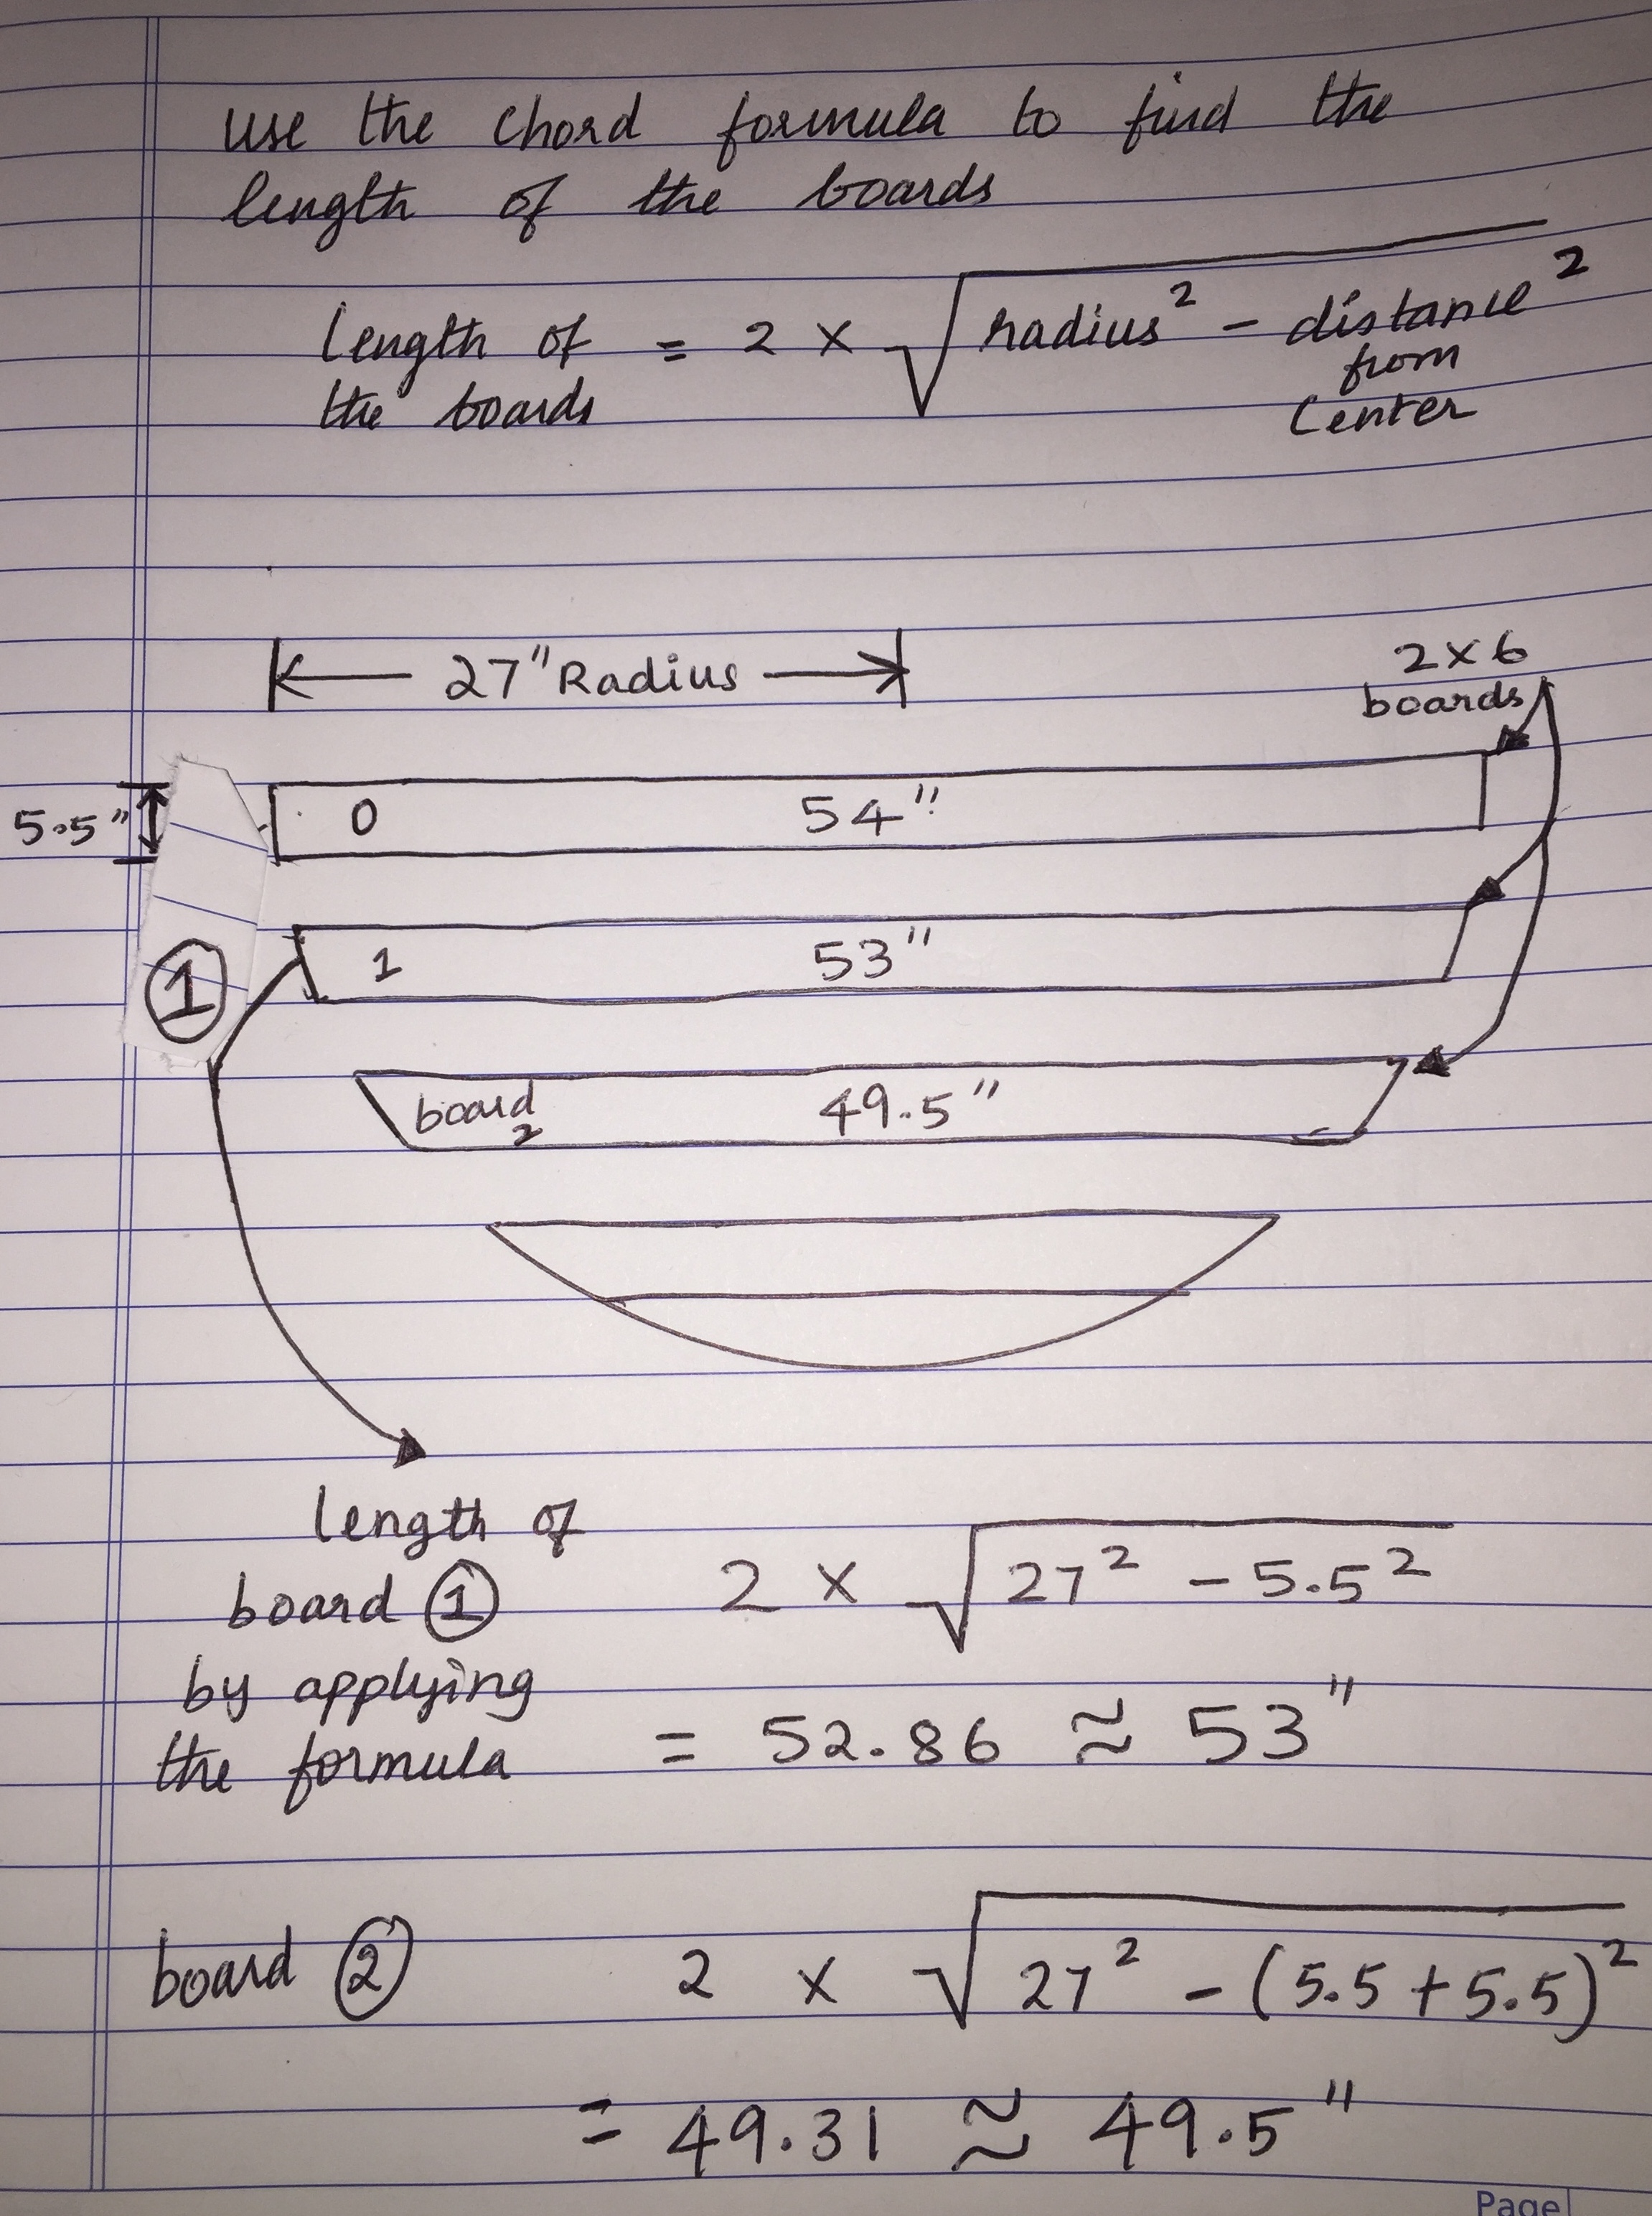 use the chord formula to find the
length of the boards
length of the boards = 2 × √(radius² − distance from Center²)
27" Radius
2×6
boards
5.5"
0 54"
1 53"
①
board 2 49.5"
length of
board ① 2 × √(27² − 5.5²)
by applying
the formula = 52.86 ≈ 53"
board ② 2 × √(27² − (5.5 + 5.5)²)
= 49.31 ≈ 49.5"
Page